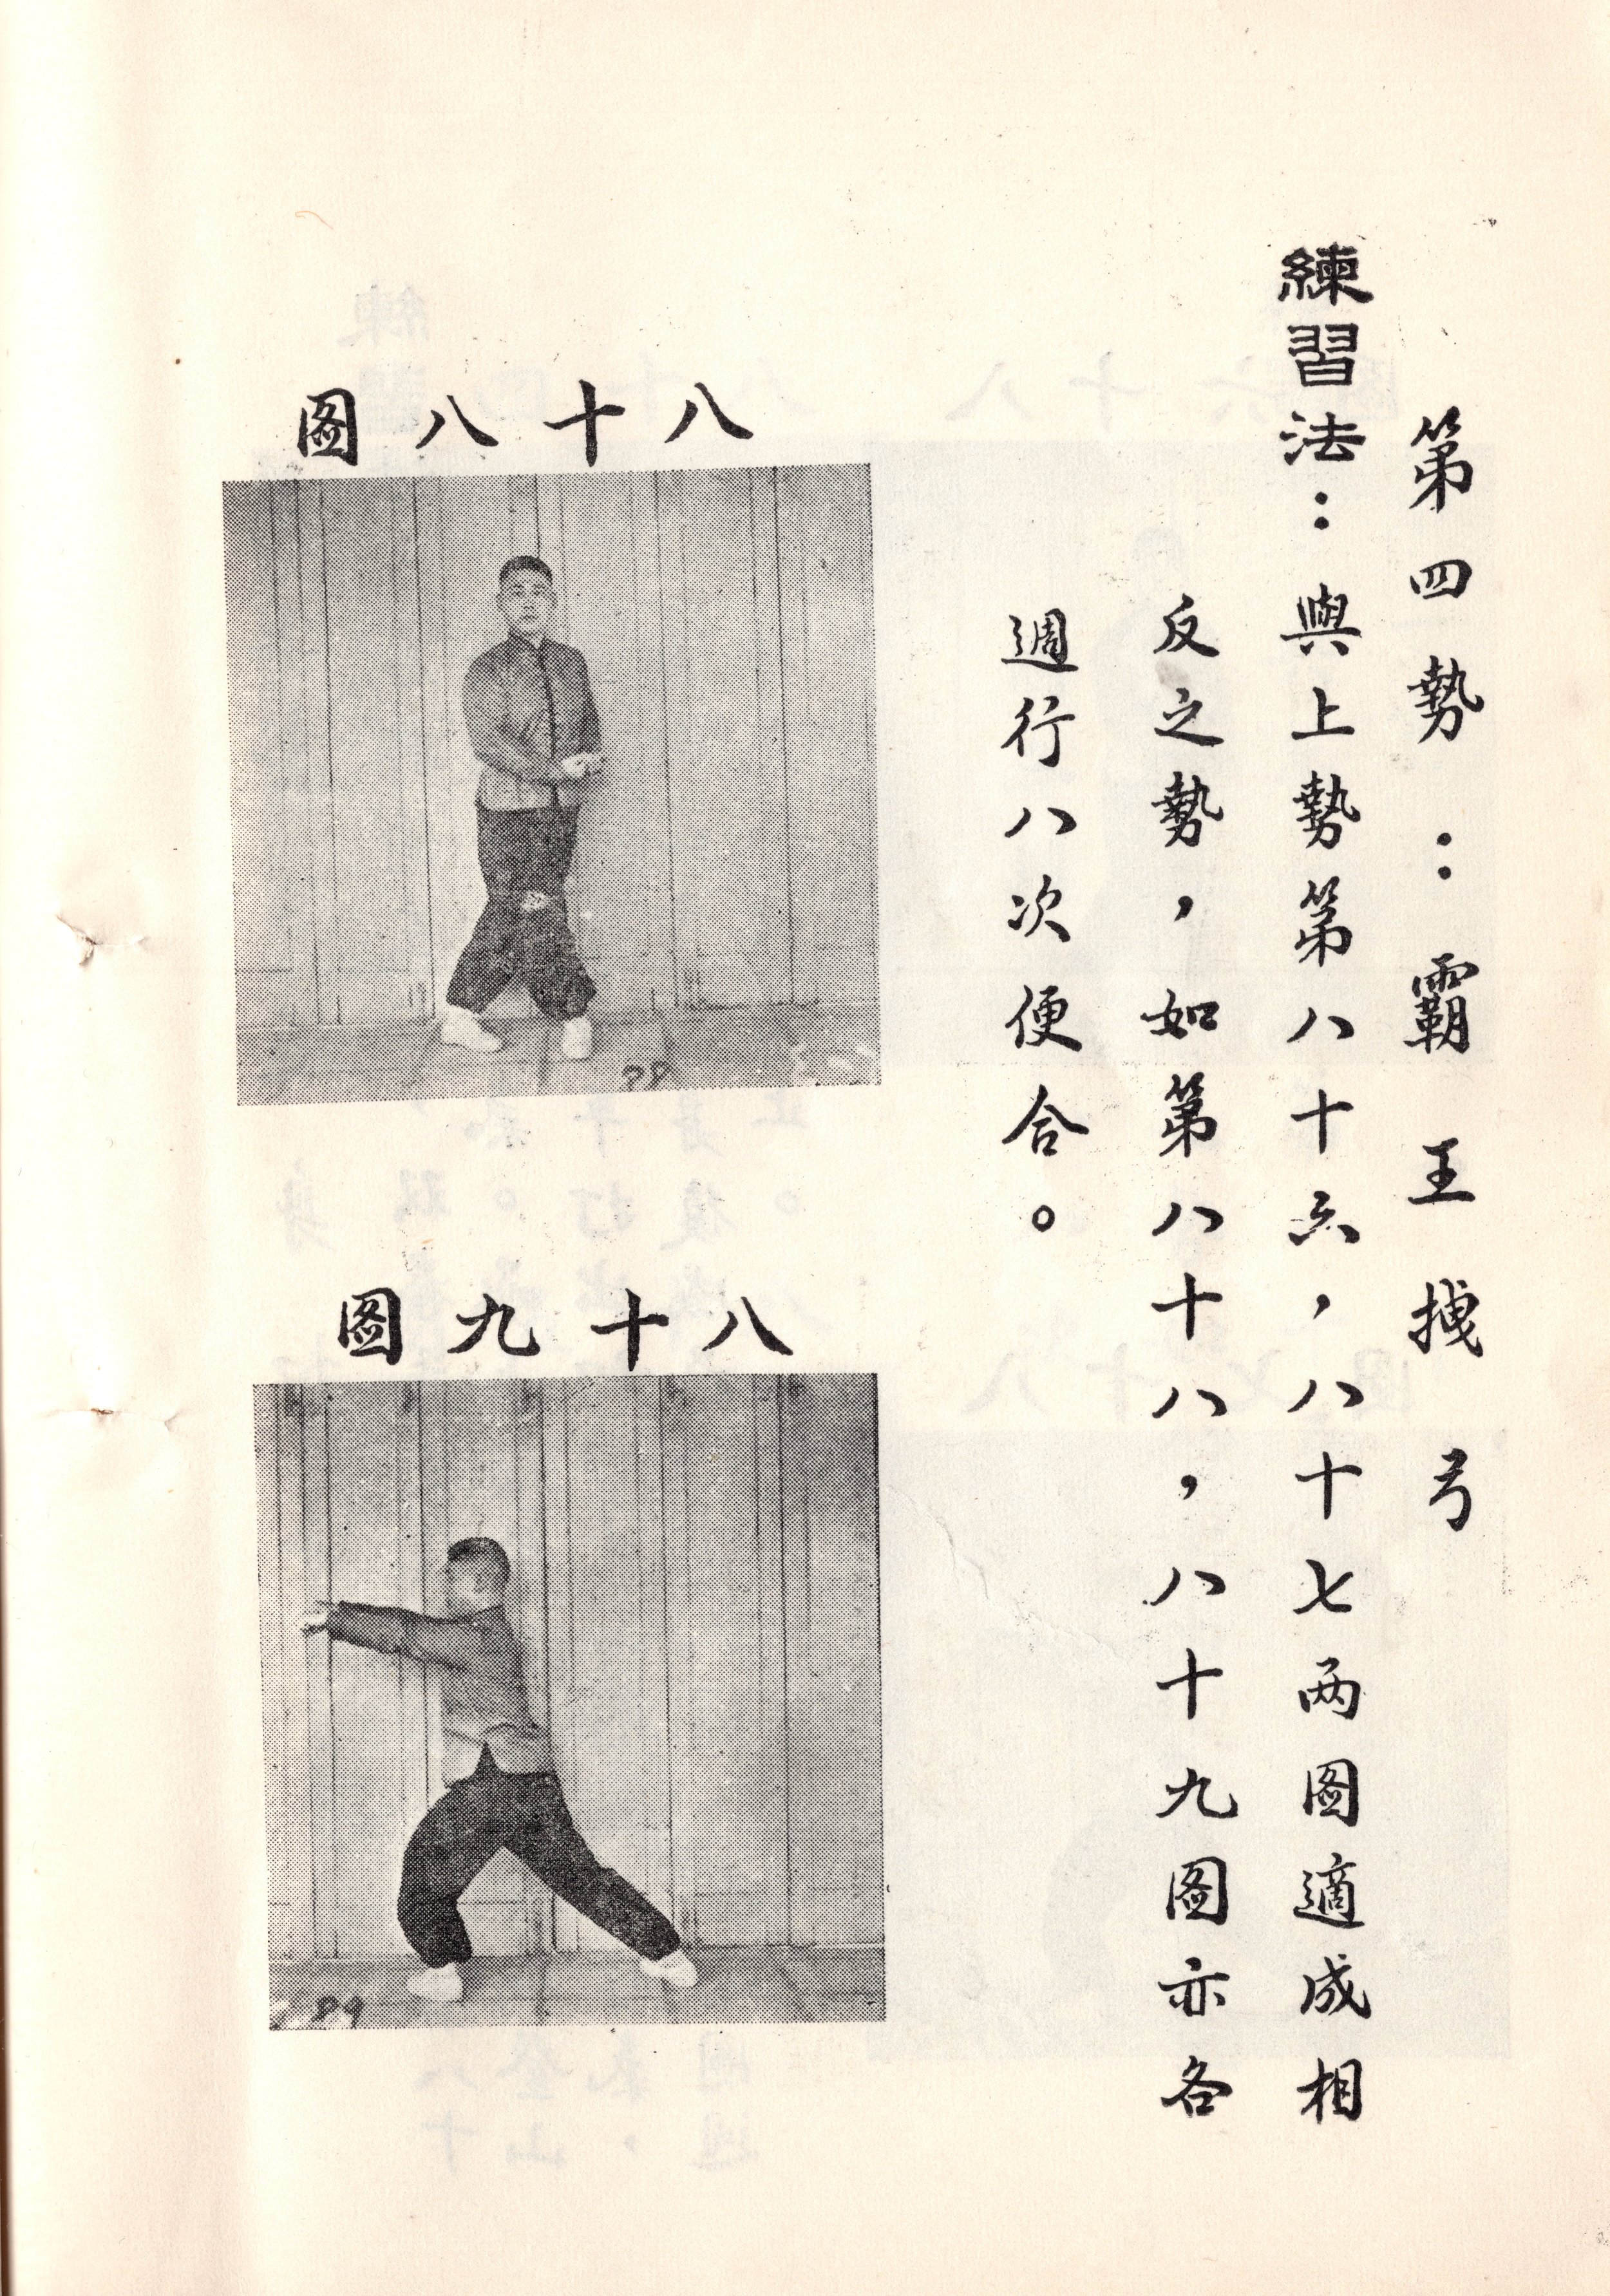 第四勢：霸王拽弓
練習法：與上勢第八十六，八十七两图適成相
反之勢，如第八十八，八十九图亦各
週行八次便合。
八十八图
88
八十九图
89